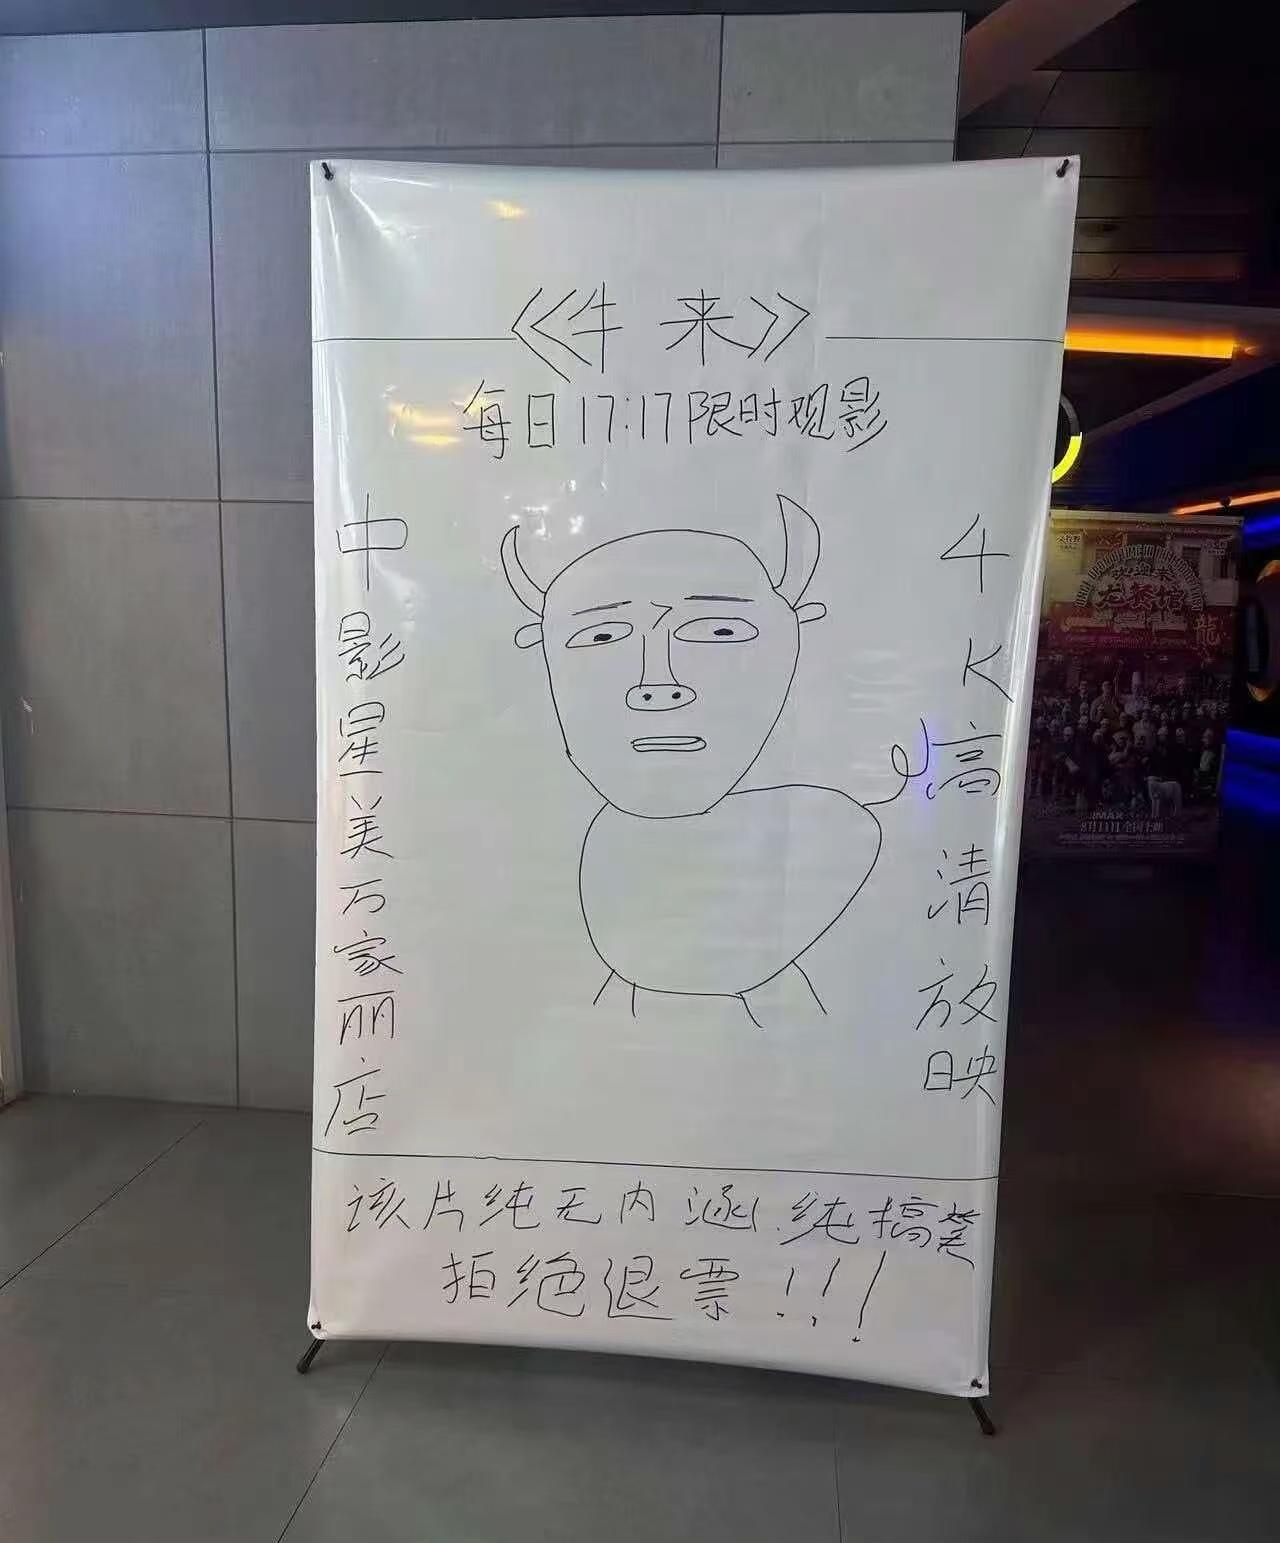 《牛来》
每日17:17限时观影
中影星美万家丽店
4K高清放映
该片纯无内涵.纯搞笑
拒绝退票！！！
IMAX
8月11日全国上映